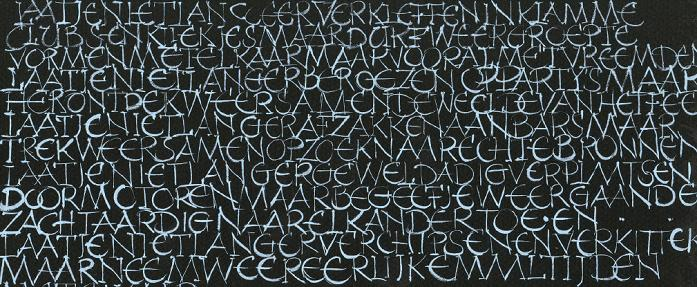 LAATJENIETLANGERVERKLEFFENIN
CLUBSENKLIEKJESMAARDURFWEERGROEPTE
VORMENMETELKAARMAARVOORALMETVREEMDE
LAATJENIETLANGERBEROEZENOPPARTYSMAAR
HERONTDEKWEERSAMENDEWEELDEVANHETFEE
LAATJENIETLANGERAFZAKKENAANBARSMAAR
TREKWEERSAMENOPZOEKNAARECHTEBRONNEN
LAATJENIETLANGERGEWELDADIGVERPLAATSEN
DOORMOTORENMAARBEGEEFJEWEERGAANDE
ZACHTAARDIGNAARELKANDERTOE·EN
LAATJENIETLANGERVERCHIPSENEN
MAARNEEMWEEREERLIJKEMAALTIJDEN